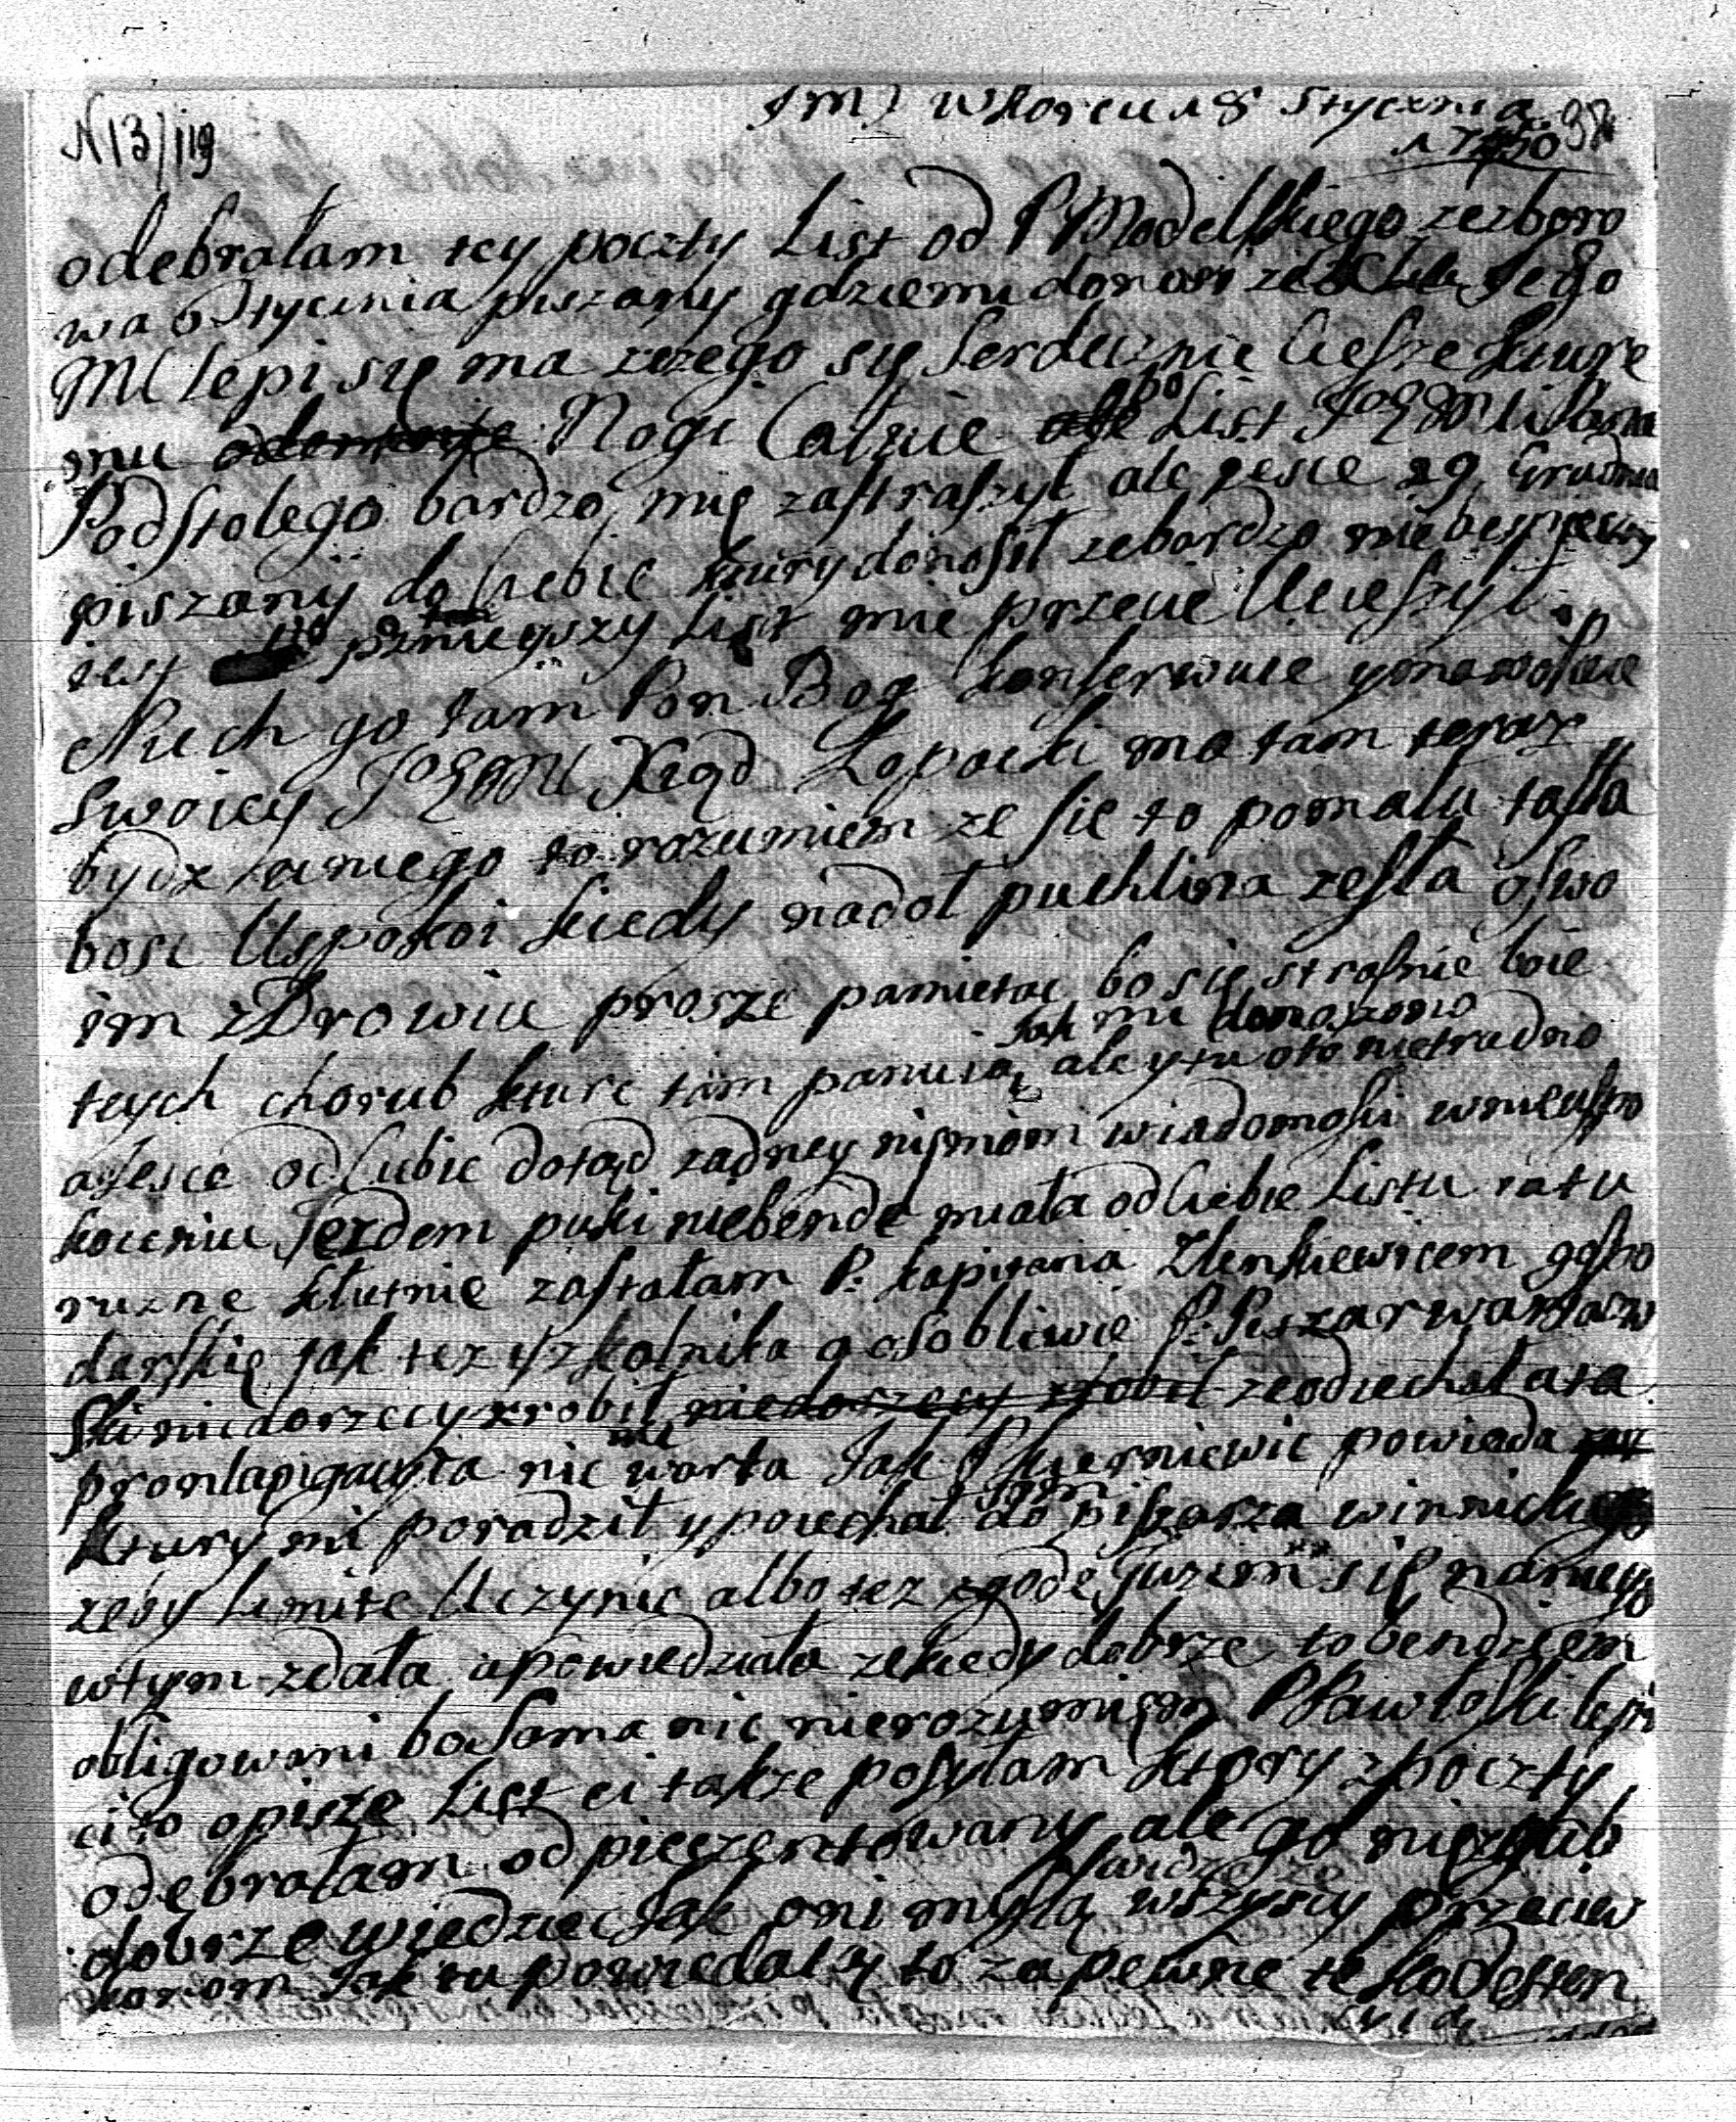 N 13/119
w Korcu 18 Stycznia
1750
odebrałam tey poczty List od P Modelskiego zezboro
wa 6 Stycznia piszany gdziemi donosi ze Jego
MC lepi się ma zczego się serdecznie Ciesze kture
mu Nogi Całuie List JoEgoMCi Pana
Podstolego bardzo mię zastraszył ale iesce 29 Grudnia
piszany do Ciebie ktury donosił zebardzo niebespieczny
iest puzniegszy List mie przecie Ucieszył
Niech go tam Pon Bog konserwuie
Swoiey Xiądz Łopacki ma tam teraz
bydz uniego to razumiem ze się to pomału ta sła
bosc Uspokoi kiedy nadoł puchlina zesła oswo
im zDrowiu prosze pamietac bo się strasnie boie
tych chorub kture tam panuią ale y tu oto nietrudno
Jak mi donoszono
a iesce od Ciebie dotąd zadney niemam wiadomosci wnieuspo
koieniu Jezdem puki niebende miała od Ciebie Listu ia tu
ruzne kłutnie zastałam P: kapitana Zlenkiewicem gospo
darskie jak tez yzkolnika osobliwie P: Pisarwarsaw
ski niedorzecy zrobił niedorzecy zrobił zeodiechał a ta
nic nie warta Jak P kierniewic powieda
ktury mi poradził ypoiechał sam do pisarza winnickiego
zeby Limite Uczynic albo tez zgode Juzem się naniego
wtym zdała apowiedziała zekiedy dobrze to bendziem
obligowani bo Sama nic nierozumiem P Pawłoski lepi
ci to opisze List ci takze posyłam ktory zpoczty
odebrałam od pieczentowany ale go nie
bardzo ze
dobrze wiedziec Jak oni myslą wszyscy przeciw
Jak tu powiedaią to zapewne te